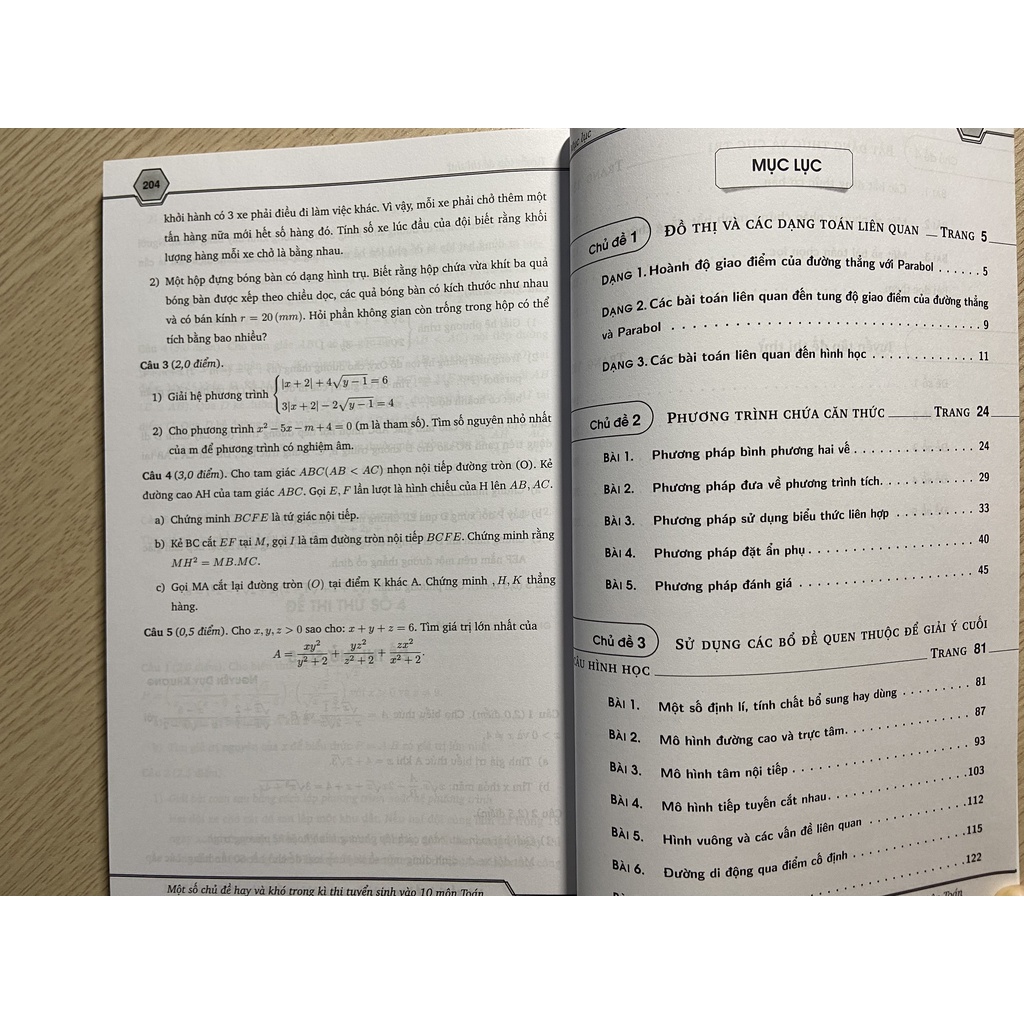 204
khởi hành có 3 xe phải điều đi làm việc khác. Vì vậy, mỗi xe phải chở thêm một
tấn hàng nữa mới hết số hàng đó. Tính số xe lúc đầu của đội biết rằng khối
lượng hàng mỗi xe chở là bằng nhau.
2) Một hộp đựng bóng bàn có dạng hình trụ. Biết rằng hộp chứa vừa khít ba quả
bóng bàn được xếp theo chiều dọc, các quả bóng bàn có kích thước như nhau
và có bán kính r = 20 (mm). Hỏi phần không gian còn trống trong hộp có thể
tích bằng bao nhiêu?
Câu 3 (2,0 điểm).
1) Giải hệ phương trình { |x + 2| + 4√(y − 1) = 6
3|x + 2| − 2√(y − 1) = 4
2) Cho phương trình x² − 5x − m + 4 = 0 (m là tham số). Tìm số nguyên nhỏ nhất
của m để phương trình có nghiệm âm.
Câu 4 (3,0 điểm). Cho tam giác ABC(AB < AC) nhọn nội tiếp đường tròn (O). Kẻ
đường cao AH của tam giác ABC. Gọi E, F lần lượt là hình chiếu của H lên AB, AC.
a) Chứng minh BCFE là tứ giác nội tiếp.
b) Kẻ BC cắt EF tại M, gọi I là tâm đường tròn nội tiếp BCFE. Chứng minh rằng
MH² = MB.MC.
c) Gọi MA cắt lại đường tròn (O) tại điểm K khác A. Chứng minh , H, K thẳng
hàng.
Câu 5 (0,5 điểm). Cho x, y, z > 0 sao cho: x + y + z = 6. Tìm giá trị lớn nhất của
A = xy²/(y² + 2) + yz²/(z² + 2) + zx²/(x² + 2).
Một số chủ đề hay và khó trong kì thi tuyển sinh vào 10 môn Toán
Mục lục
MỤC LỤC
Chủ đề 1 ĐỒ THỊ VÀ CÁC DẠNG TOÁN LIÊN QUAN __ TRANG 5
DẠNG 1. Hoành độ giao điểm của đường thẳng với Parabol ...... 5
DẠNG 2. Các bài toán liên quan đến tung độ giao điểm của đường thẳng
và Parabol .............................. 9
DẠNG 3. Các bài toán liên quan đến hình học ............. 11
Chủ đề 2 PHƯƠNG TRÌNH CHỨA CĂN THỨC ______ TRANG 24
BÀI 1. Phương pháp bình phương hai vế ................ 24
BÀI 2. Phương pháp đưa về phương trình tích. ............ 29
BÀI 3. Phương pháp sử dụng biểu thức liên hợp .......... 33
BÀI 4. Phương pháp đặt ẩn phụ ..................... 40
BÀI 5. Phương pháp đánh giá ...................... 45
Chủ đề 3 SỬ DỤNG CÁC BỔ ĐỀ QUEN THUỘC ĐỂ GIẢI Ý CUỐI
CÂU HÌNH HỌC ______ TRANG 81
BÀI 1. Một số định lí, tính chất bổ sung hay dùng ......... 81
BÀI 2. Mô hình đường cao và trực tâm. ............... 87
BÀI 3. Mô hình tâm nội tiếp ...................... 93
BÀI 4. Mô hình tiếp tuyến cắt nhau. ................. 103
BÀI 5. Hình vuông và các vấn đề liên quan ............. 112
BÀI 6. Đường di động qua điểm cố định ............... 115
122
Toán